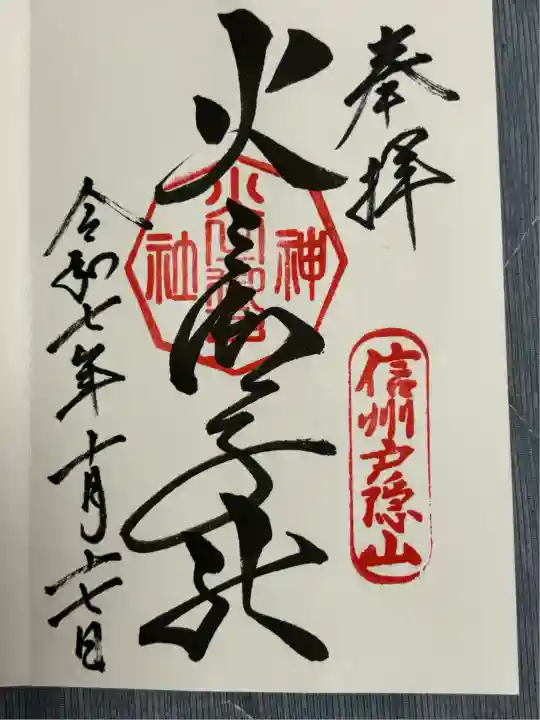 奉拝
信州戸隠山
火之御子社
神
社
令和七年十月十七日